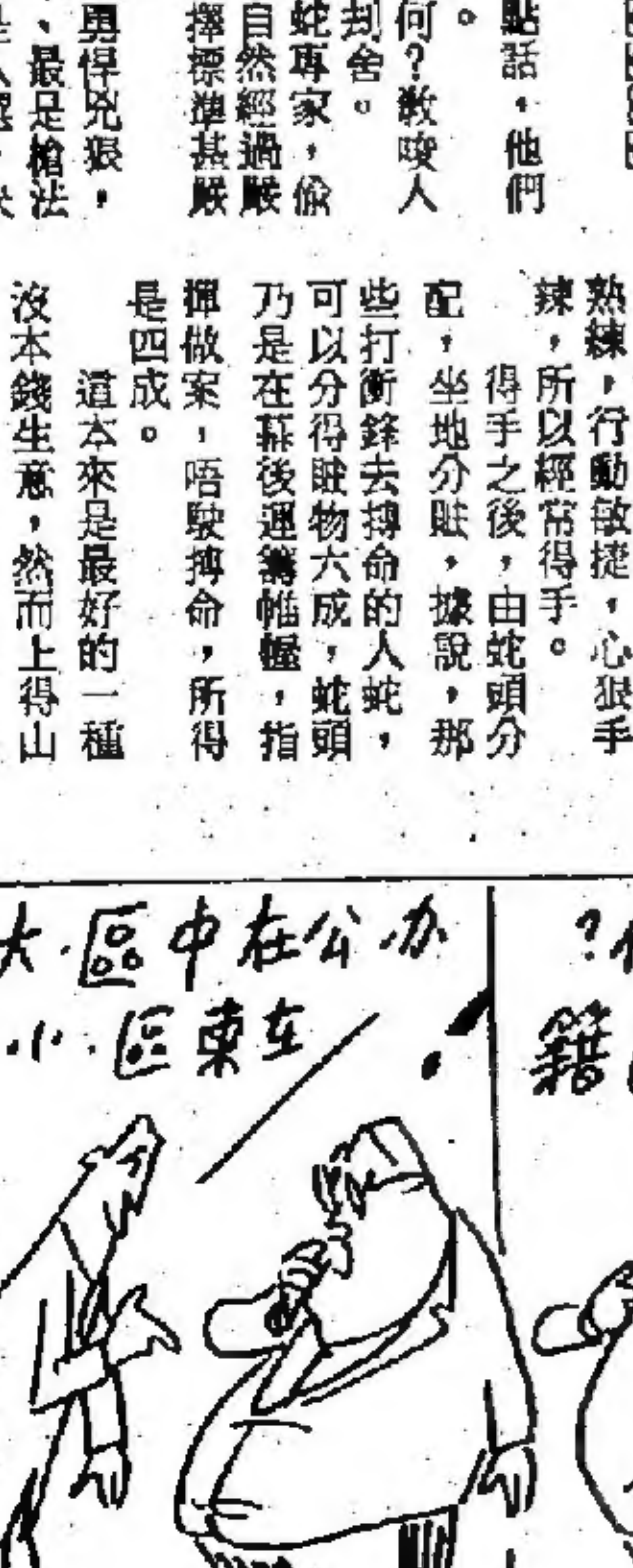 點話,他們
。
何?教唆人
刦舍。
蛇專家,偸
自然經過嚴
擇標準甚嚴
勇悍兇狠,
、最是槍法
熟練,行動敏捷,心狠手
辣,所以經常得手。
得手之後,由蛇頭分
配,坐地分賍,據說,那
些打衝鋒去搏命的人蛇,
可以分得賍物六成,蛇頭
乃是在幕後運籌帷幄,指
揮做案,唔駛搏命,所得
是四成。
這本來是最好的一種
沒本錢生意,然而上得山
?
籍
办公在中區.大
在東區.小.